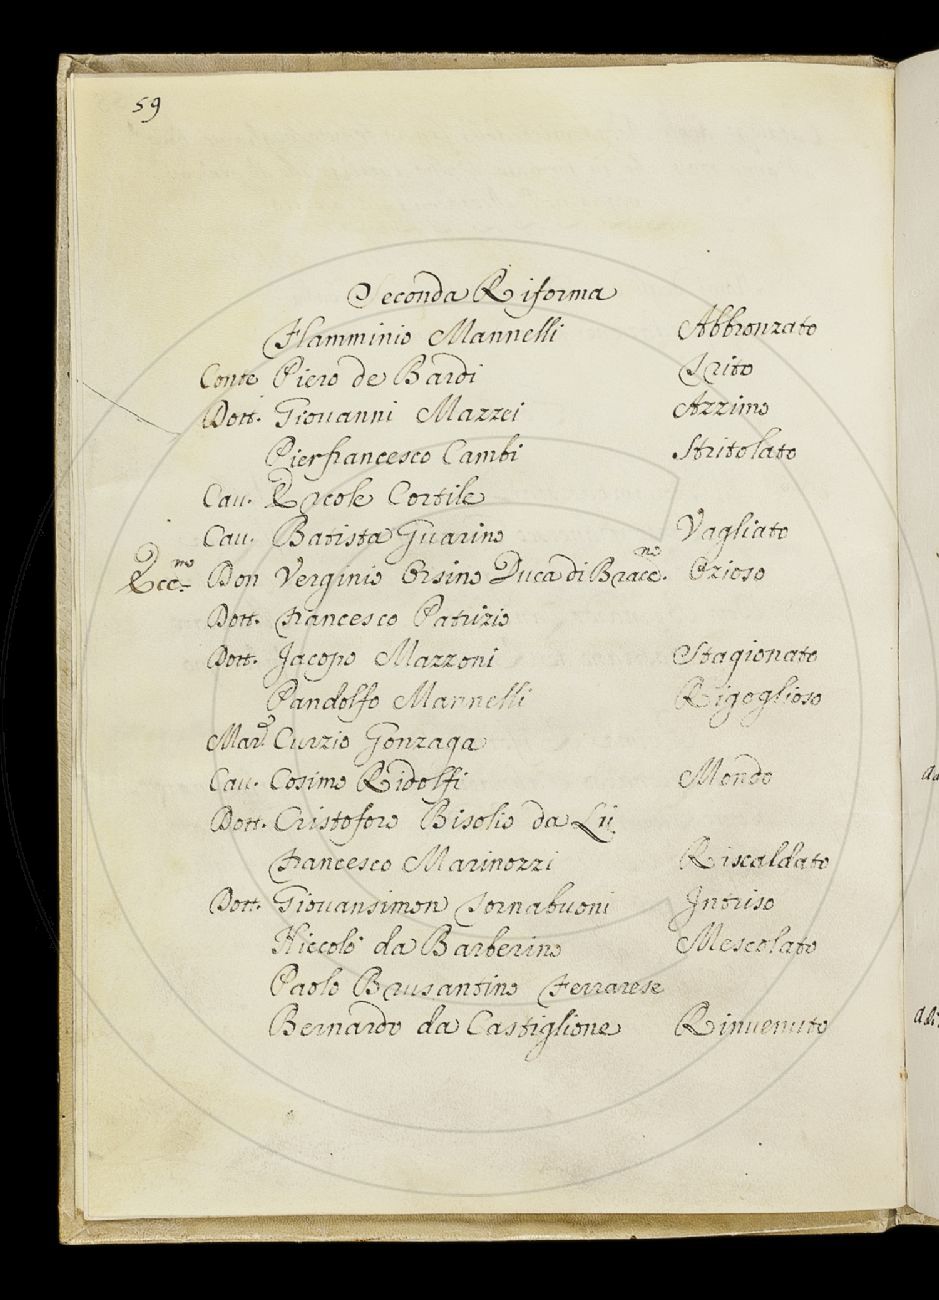 59
Seconda Riforma
Flamminio Mannelli Abbronzato
Conte Piero de Bardi Trito
Dott. Giouanni Mazzei Azzimo
Pierfrancesco Cambi Stritolato
Cau. Ercole Cortile
Cau. Batista Guarino Vagliato
Ecc.mo Don Verginio Orsino Duca di Bracc.no Ozioso
Dott. Francesco Patrizio
Dott. Jacopo Mazzoni Stagionato
Pandolfo Mannelli Rigoglioso
Mar.e Curzio Gonzaga
Cau. Cosimo Ridolfi Mondo
Dott. Cristoforo Bisolio da Lii
Francesco Marinozzi Riscaldato
Dott. Giouansimon Tornabuoni Intriso
Niccolò da Barberino Mescolato
Paolo Brusantino Ferrarese
Bernardo da Castiglione Rinuenuto